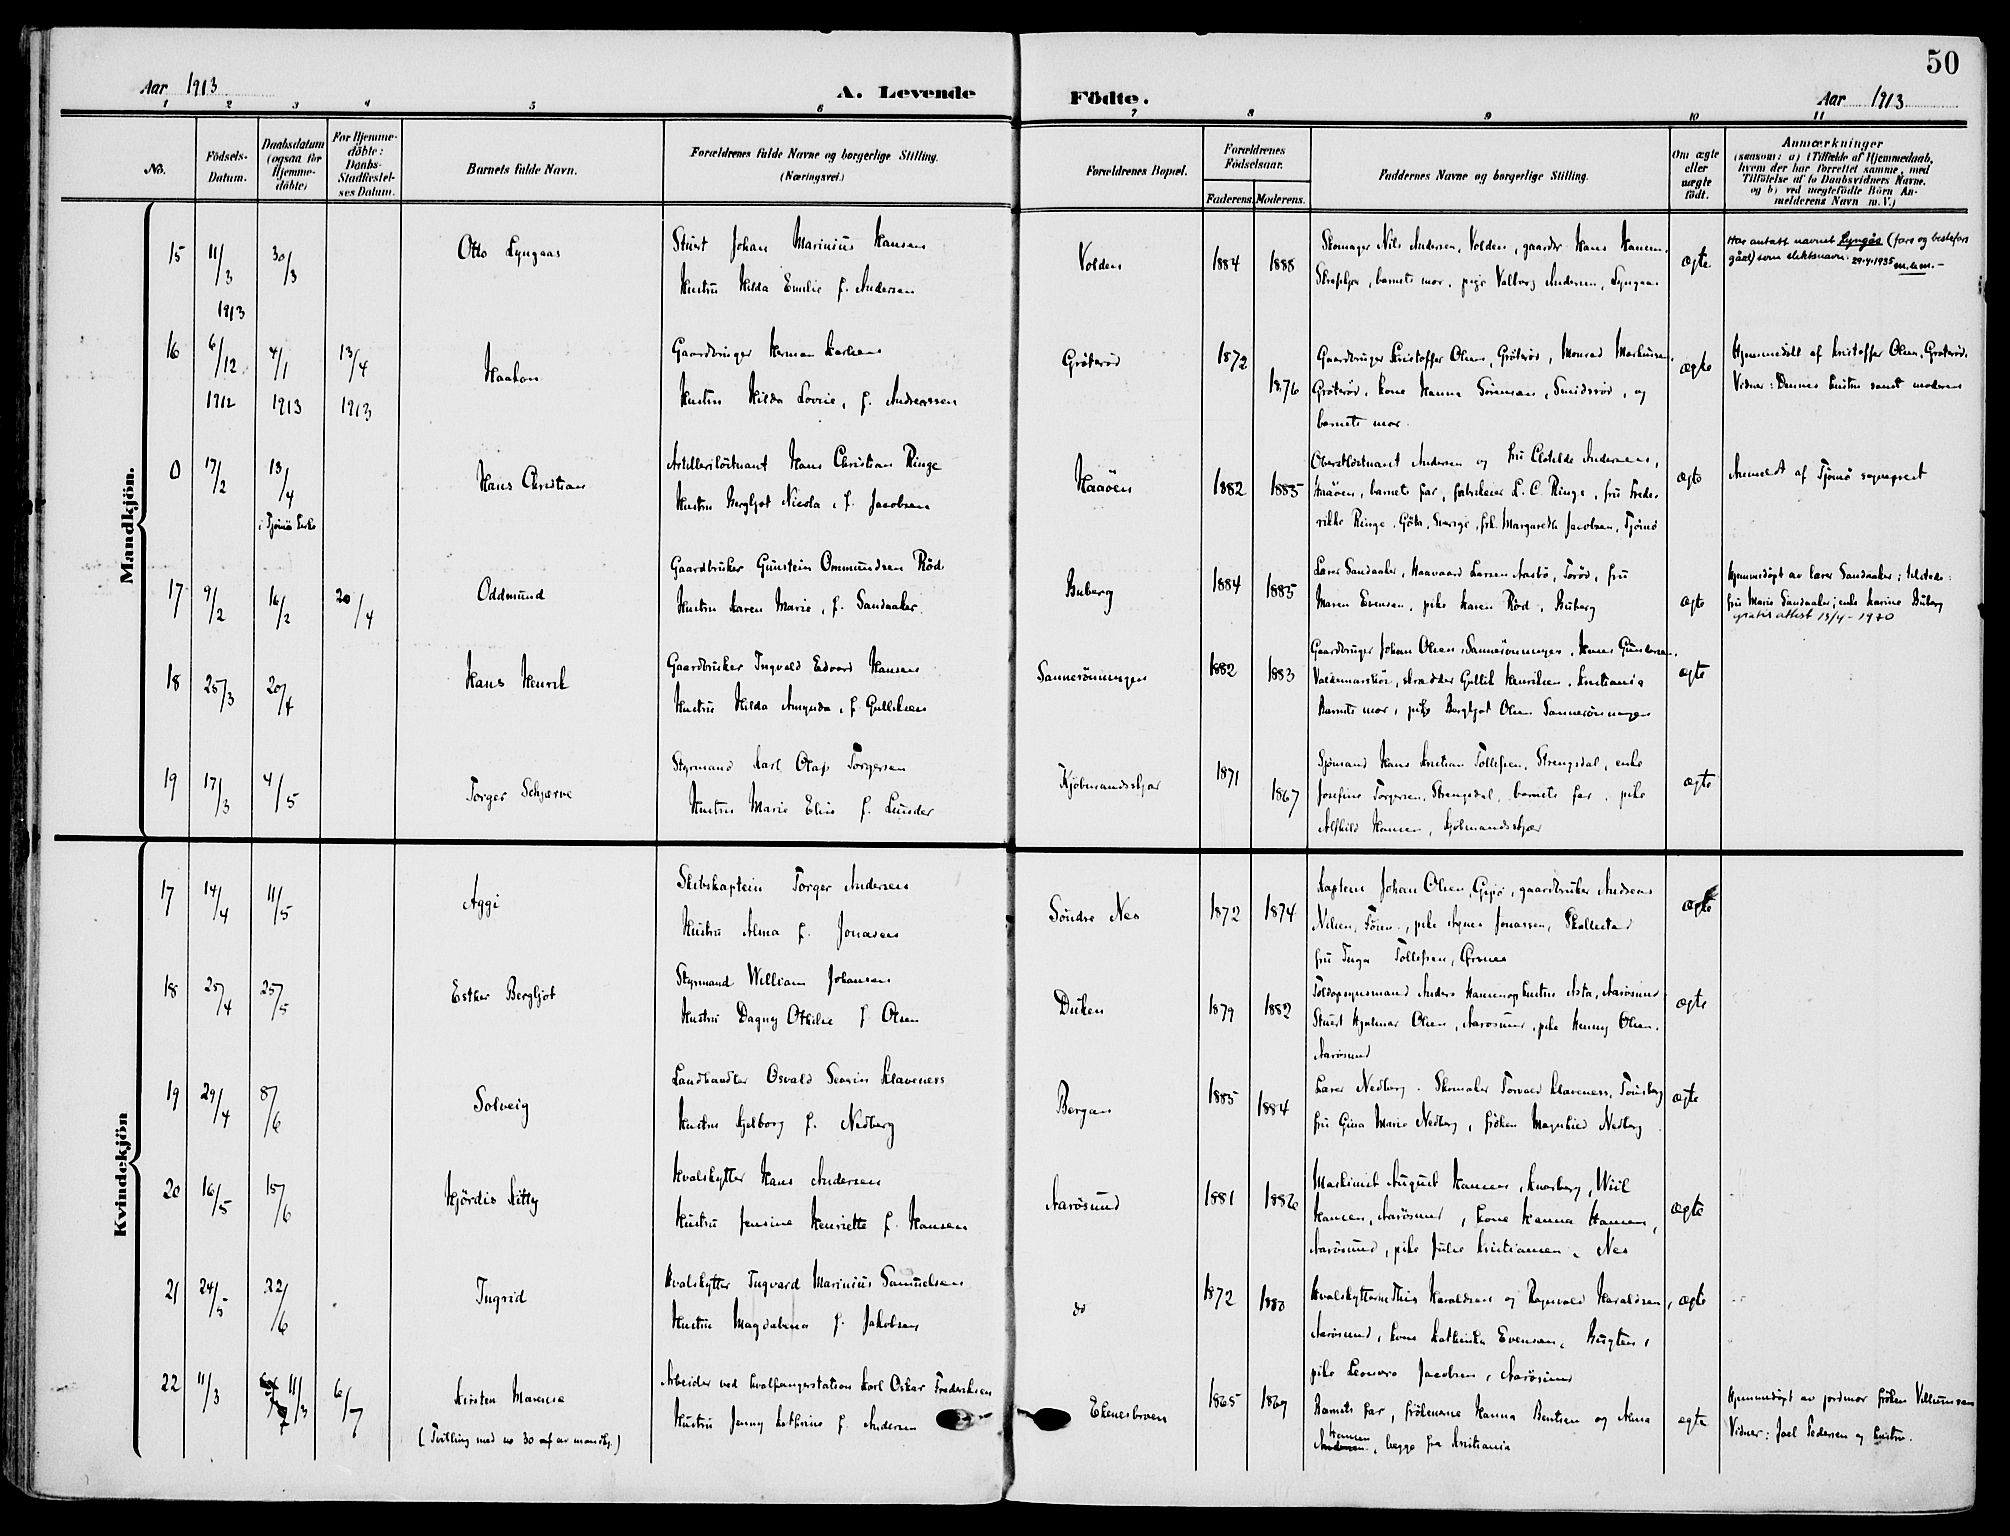 50
Aar 1913
A. Levende
Födte.
Aar 1913
1 2 3 4 5 6 7 8 9 10 11
No.
Födsels-Datum.
Daabsdatum (ogsaa for Hjemme-döbte)
For Hjemme-döbte: Daabs-Stadfæstel-ses Datum.
Barnets fulde Navn.
Forældrenes fulde Navne og borgerlige Stilling.
(Næringsvei.)
Forældrenes Bopæl.
Forældrenes Födselsaar.
Faderens. Moderens.
Faddernes Navne og borgerlige Stilling.
Om ægte eller uægte födt.
Anmærkninger
(saasom: a) i Tilfælde af Hjemmedaab,
hvem der har forrettet samme, med
Tilföielse af to Daabsvidners Navne.
og b) ved uægtefödte Börn An-
melderens Navn m.V.)
Mandkjön.
15 11/3 1913 30/3 Otto Lyngaas
Stuert Johan Marinius Hansen
Hustru Hilda Emilie f. Andersen
Volden 1884 1888
Skomager Nils Andersen, Volden, gaardbr Hans Hansen
barnets mor, pige Valborg Andersen, Lyngaas
ægte
Har antatt navnet Lyngås (fars og bestefars
gård) som slektsnavn. 29.4.1935
16 6/12 1912 4/1 1913 13/4 1913 Haakon
Gaardbruger Herman Karlsen
Hustru Hilda Lovise, f. Andreassen
Gröteröd 1872 1876
Gaardbruger Kristoffer Olsen, Gröteröd, Monrad Markussen
Gröteröd, kone Hanna Sörensen, Smidsröd, og
barnets mor.
ægte
Hjemmedöbt af Kristoffer Olsen, Gröteröd.
Vidner: Dennes hustru samt moderen
0 17/2 13/4 i Tjömö kirke Hans Christian
Artilleriløitnant Hans Christian Ringe
Hustru Bergljot Nicola, f. Jacobsen
Haaöen 1882 1885
Oberstløitnant Andersen og fru Clotilde Andersen,
Haaöen, barnets far, fabrikeier L. C. Ringe, fru Frede-
rikke Ringe, Göta, Sverige, frk. Margarethe Jacobsen, Tjömö
ægte
Anmeldt af Tjömö sogneprest
17 9/2 16/2 20/4 Oddmund
Gaardbruker Gunstein Ommundsen Röd
Hustru Karen Marie, f. Sandaaker
Buberg 1884 1885
Lærer Sandaaker, Haavaard Larsen Aasbö, Toröd, fru
Maren Evensen, pike Karen Röd, Buberg
ægte
Hjemmedöpt av lærer Sandaaker; tilstede:
fru Marie Sandaaker; enke Karine Buberg
gratis attest 15/4-1940
18 25/3 20/4 Hans Henrik
Gaardbruker Ingvald Edvard Hansen
Hustru Hilda Amanda, f. Gulliksen
Sannerönningen 1882 1883
Gaardbruger Johan Olsen, Sannerönningen, Hans Gundersen
skrædder Gullik Henriksen, Kristiania
Barnets mor, pike Bergljot Olsen Sannerönningen
ægte
19 17/3 4/5 Torger Schjærve
Styrmand Karl Olaf Torgersen
Hustru Marie Elise f. Lunder
Kjöbmandsskjær 1871 1867
Sjömand Hans Kristian Tollefsen, Strengsdal, enke
Josefine Torgersen, Strengsdal, barnets far, pike
Alfhild Hansen, Kjöbmandsskjær
ægte
Kvindekjön
17 14/4 11/5 Aggi
Skibskaptein Torger Andersen
Hustru Alma f. Jonassen
Söndre Nes 1872 1874
Kaptein Johan Olsen, gaardbruker Andreas
Nilsen, pike Agnes Jonassen, Skallestad
fru Inga Tollefsen
ægte
18 25/4 25/5 Esther Bergljot
Styrmand William Johansen
Hustru Dagny Othilie f. Olsen
Duken 1879 1882
Toldopsynsmand Anders Hansen og hustru Asta, Aarösund
Stuert Hjalmar Olsen, Aarösund, pike Henny Olsen,
Aarösund
ægte
19 29/4 8/6 Solveig
Landhandler Osvald Severin Klaveness
Hustru Hjelborg f. Nedberg
Bergan 1885 1884
Lærer Nedberg. Skomaker Torvald Klaveness, Tönsberg
fru Gina Marie Nedberg, fröken Magnhild Nedberg
ægte
20 16/5 15/6 Hjördis Kitty
Hvalskytter Hans Andersen
Hustru Jensine Henriette f. Hansen
Aarösund 1881 1886
Maskinist August Hansen, Knarberg,
Hansen, Aarösund, kone Hanna Hansen,
Aarösund, pike Julie Kristiansen, Nes
ægte
21 24/5 22/6 Ingrid
Hvalskytter Ingvard Marinius Samuelsen
Hustru Magdalena f. Jakobsen
do 1872 1880
Hvalskytterne Thus Haraldsen og Ragnvald Haraldsen,
Aarösund, kone Kathinka Evensen, Bugten,
pike Leonora Jacobsen, Aarösund
ægte
22 11/3 11/3 6/7 Kirsten Marense
(Tvilling med no 30 af av mandkj.)
Arbeider ved hvalfangerstation Karl Oskar Fredriksen
Hustru Jenny Kathrine f. Andersen
Ekenesbroen 1865 1869
Barnets far, frökenerne Hanna Bentsen og Alma
Hansen
Andersen, begge fra Kristiania
ægte
Hjemmedöpt av jordmor fröken Villumsen
Vidner: Joel Pedersen og hustru.